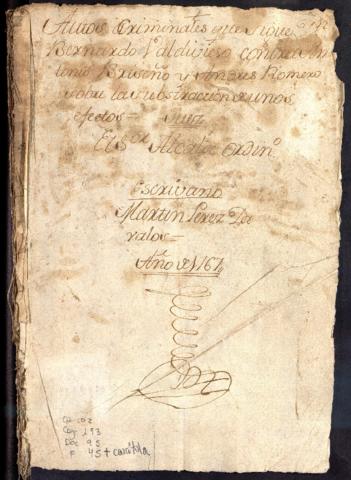 Autos Criminales que sigue
Bernardo Valdivieso contra An
tonio Briseño y Andres Romero
sobre la substraccion de unos
efectos = Juez
El Sor Alcalde Ordino
escrivano
Martin Perez Da
valos =
Año de 1761
Cj 102
Cog 193
Doc 95
F 45 + carátula